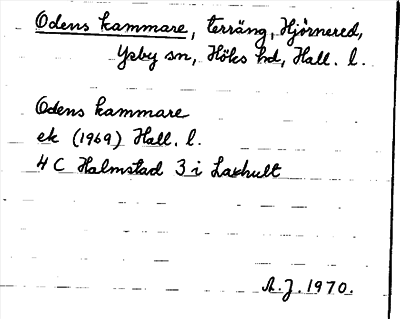 Odens kammare, terräng, Hjörnered,
Ysby sn, Höks hd, Hall. l.
Odens kammare
ek (1969) Hall. l.
4 C Halmstad 3 i Laxhult
A.J. 1970.